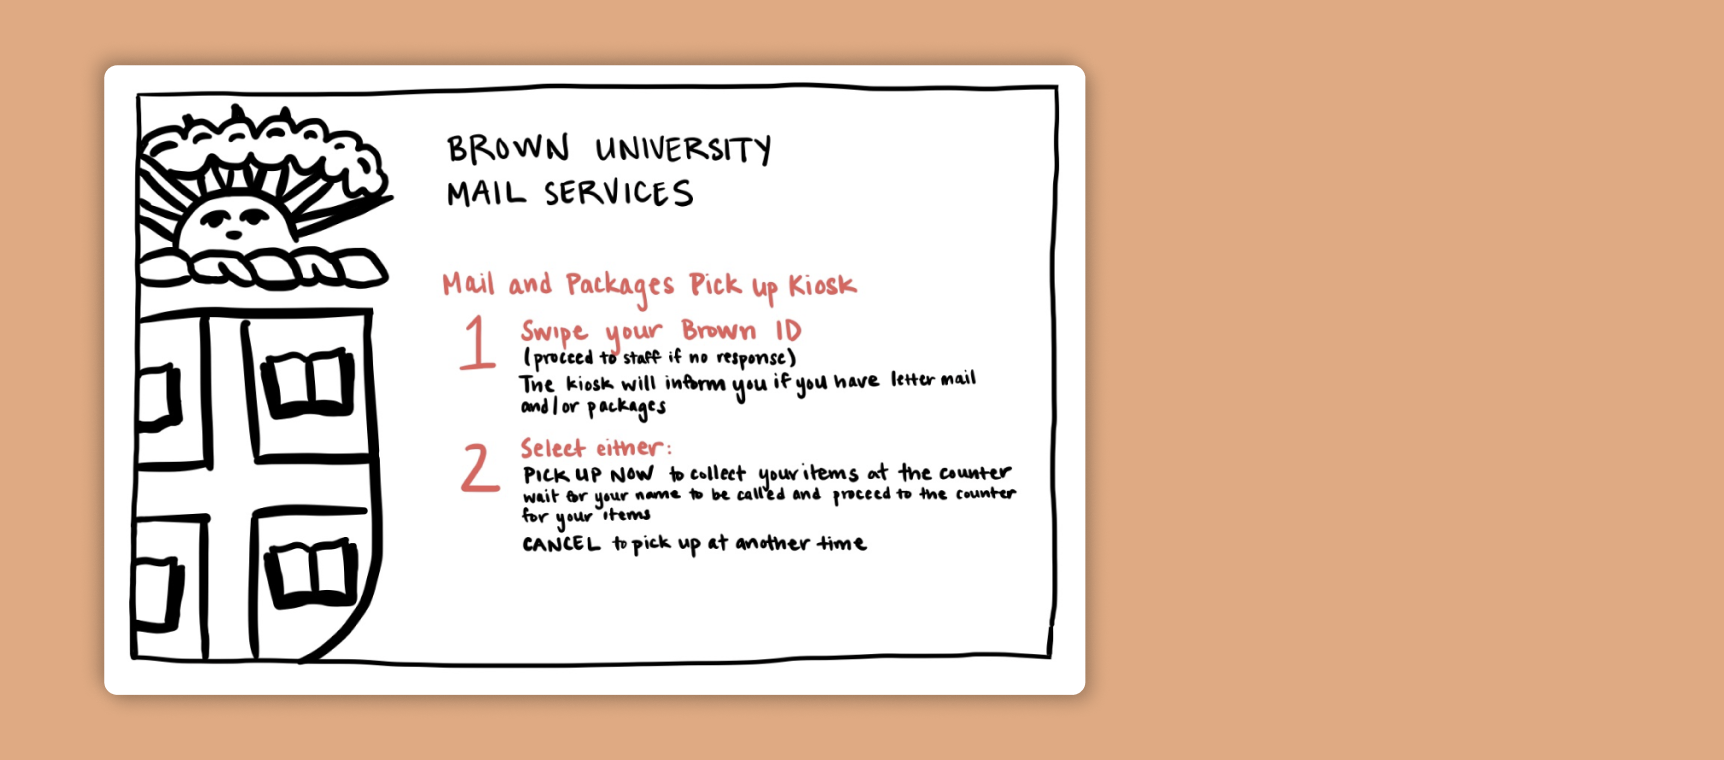 BROWN UNIVERSITY
MAIL SERVICES
Mail and Packages Pick up Kiosk
1 Swipe your Brown ID
(proceed to staff if no response)
The kiosk will inform you if you have letter mail
and/or packages
2 Select either:
PICK UP NOW to collect your items at the counter
wait for your name to be called and proceed to the counter
for your items
CANCEL to pick up at another time